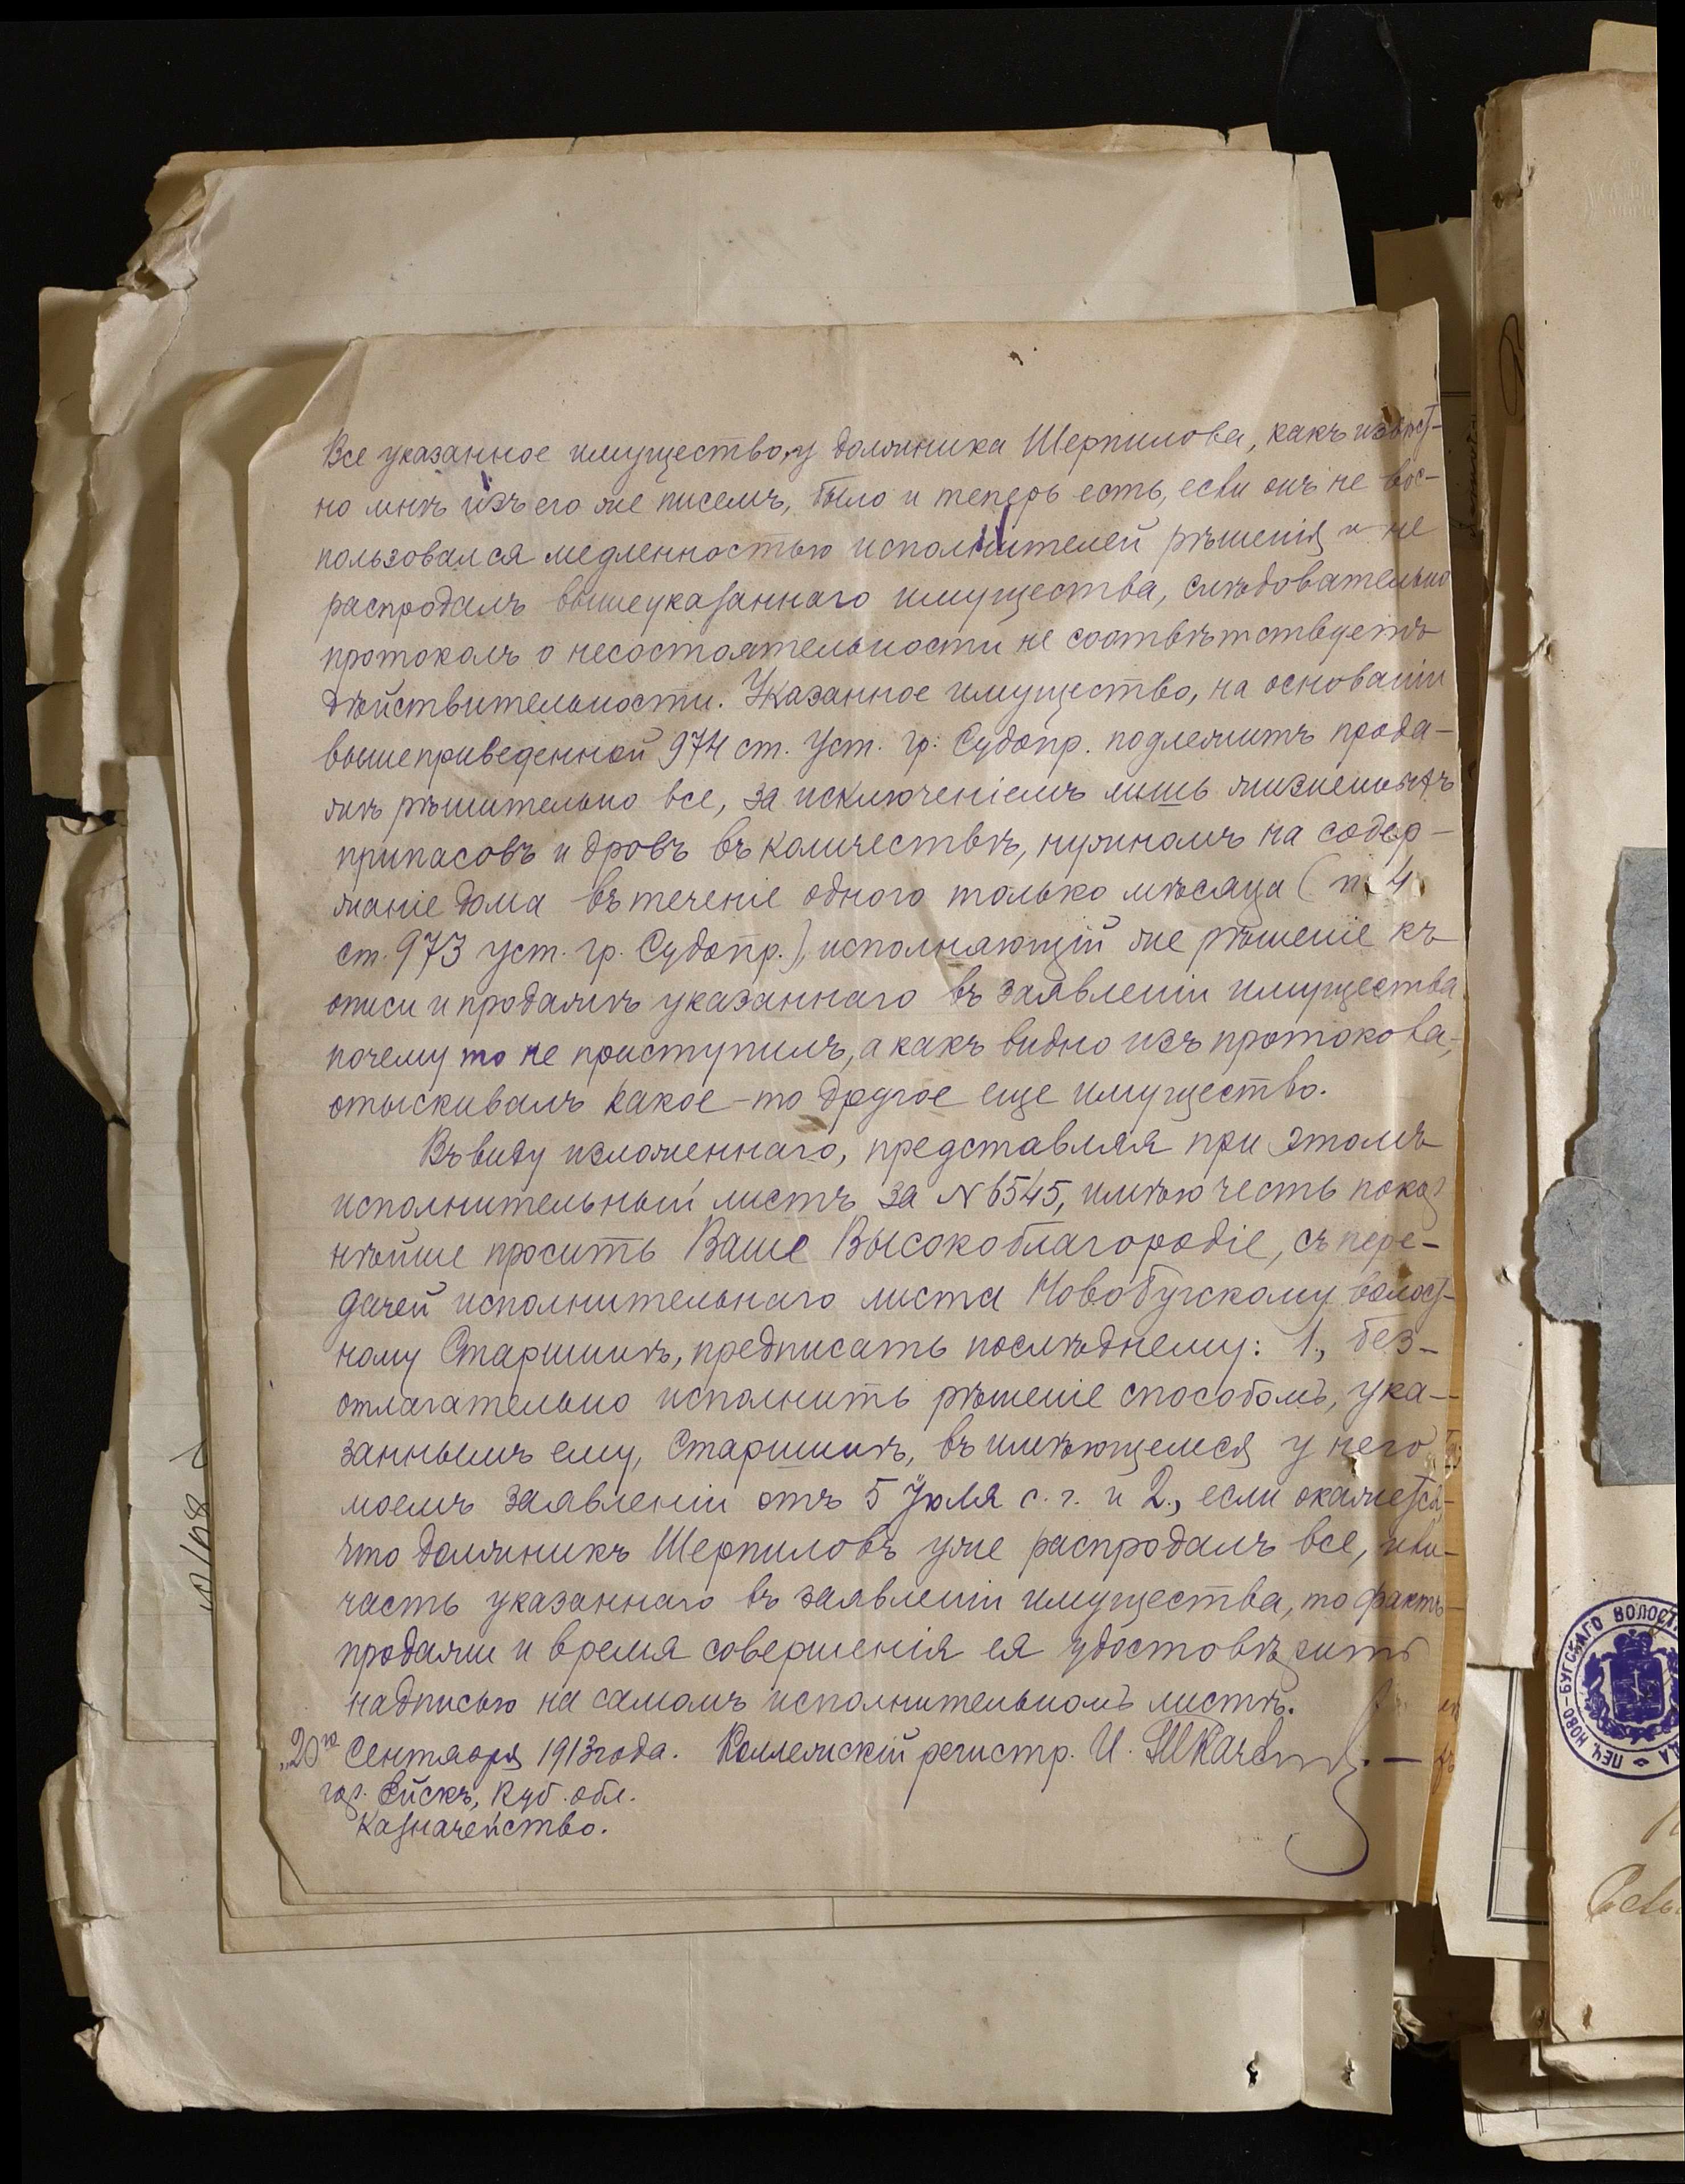 Все указанное имущество, у должника Шерпилова, какъ извѣст-
но мнѣ изъ его же писемъ, было и теперь есть, если онъ не вос-
пользовался медленностью исполнителей рѣшенія и не
распродалъ вышеуказаннаго имущества, слѣдовательно
протоколъ о несостоятельности не соотвѣтствуетъ
дѣйствительности. Указанное имущество, на основаніи
вышеприведенной 974 ст. Уст. Гр. Судопр. подлежитъ прода-
жѣ рѣшительно все, за исключеніемъ лишь жизненныхъ
припасовъ и дровъ въ количествѣ, нужномъ на содер-
жаніе дома въ теченіе одного только мѣсяца (п. 4
ст. 973 уст. гр. Судопр.), исполняющій же рѣшеніе къ
описи и продажѣ указаннаго въ заявленіи имущества
почему то не приступилъ, а какъ видно изъ протокола,
отыскивалъ какое-то другое еще имущество.
Въ виду изложеннаго, представляя при этомъ
исполнительный листъ за № 6545, имѣю честь покор
нѣйше просить Ваше Высокоблагородіе, съ пере-
дачей исполнительнаго листа Новобугскому волост-
ному Старшинѣ, предписать послѣднему: 1., без-
отлагательно исполнить рѣшеніе способомъ, ука-
заннымъ ему, Старшинѣ, въ имѣющемся у него
моемъ заявленіи отъ 5 Іюля с. г. и 2., если окажется,
что должникъ Шерпиловъ уже распродалъ все, или
часть указаннаго въ заявленіи имущества, то фактъ
продажи и время совершенія ея удостовѣрить
надписью на самомъ исполнительномъ листѣ.
„20го Сентября 1913 года. Коллежскій регистр. И.
гор. Ейскъ, Куб. обл.
Казначейство.
ПЕЧ. НОВО-БУГСКАГО ВОЛОСТ